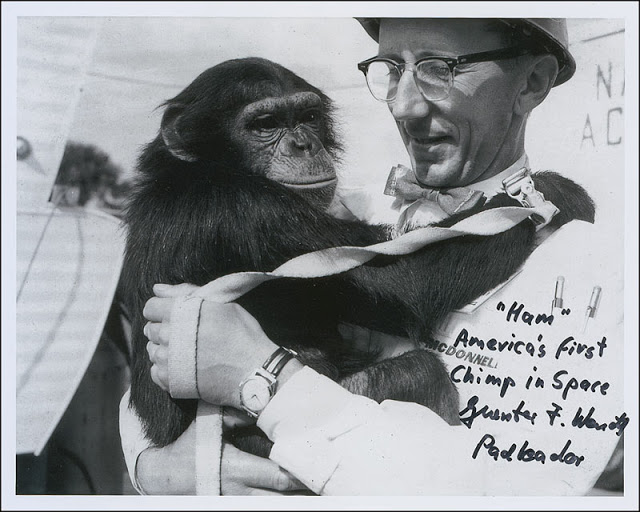 N
AC
"Ham"
America's first
MCDONNELL
Chimp in Space
Guenter F. Wendt
Padleader